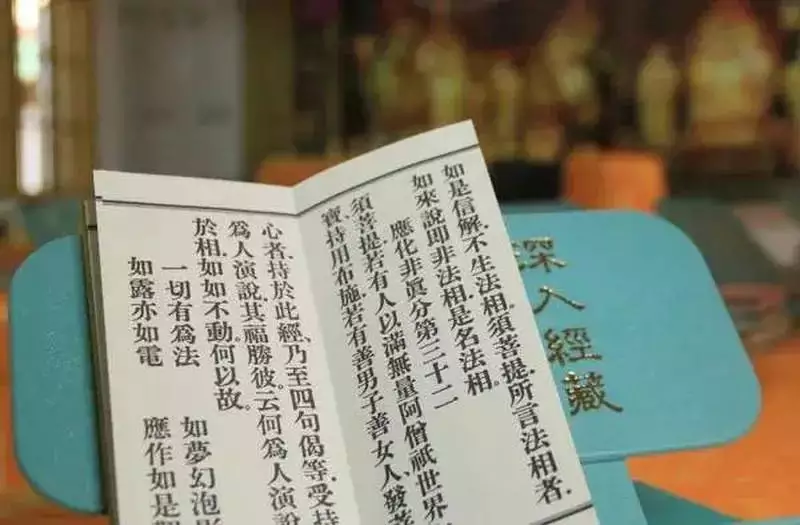 如是信解、不生法相、須菩提、所言法相者、
如來說即非法相、是名法相。
應化非眞分第三十二
須菩提、若有人以滿無量阿僧祇世界
寶、持用布施、若有善男子善女人、發
心者、持於此經、乃至四句偈等、受持
爲人演說、其福勝彼。云何爲人演說
於相、如如不動。何以故。
一切有爲法 如夢幻泡
如露亦如電 應作如是
深入經藏